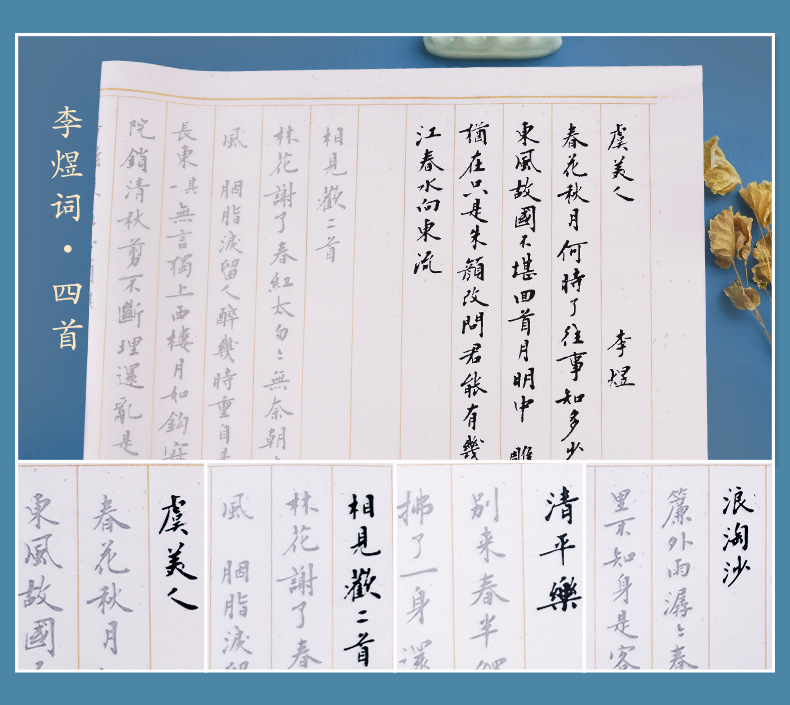 李煜词·四首
虞美人 李煜
春花秋月何時了往事知多少
東風故國不堪回首月明中 雕
猶在只是朱顏改問君能有幾
江春水向東流
相見歡二首
林花謝了春紅太匆〻無奈朝
風 胭脂淚留人醉幾時重自是
長東 其一 無言獨上西樓月如鉤寂
院鎖清秋剪不斷理還亂是
虞美人
春花秋月
東風故國
相見歡二首
林花謝了春
風 胭脂淚留
清平樂
别来春半觸
拂了一身還
浪淘沙
簾外雨潺〻春
里不知身是客